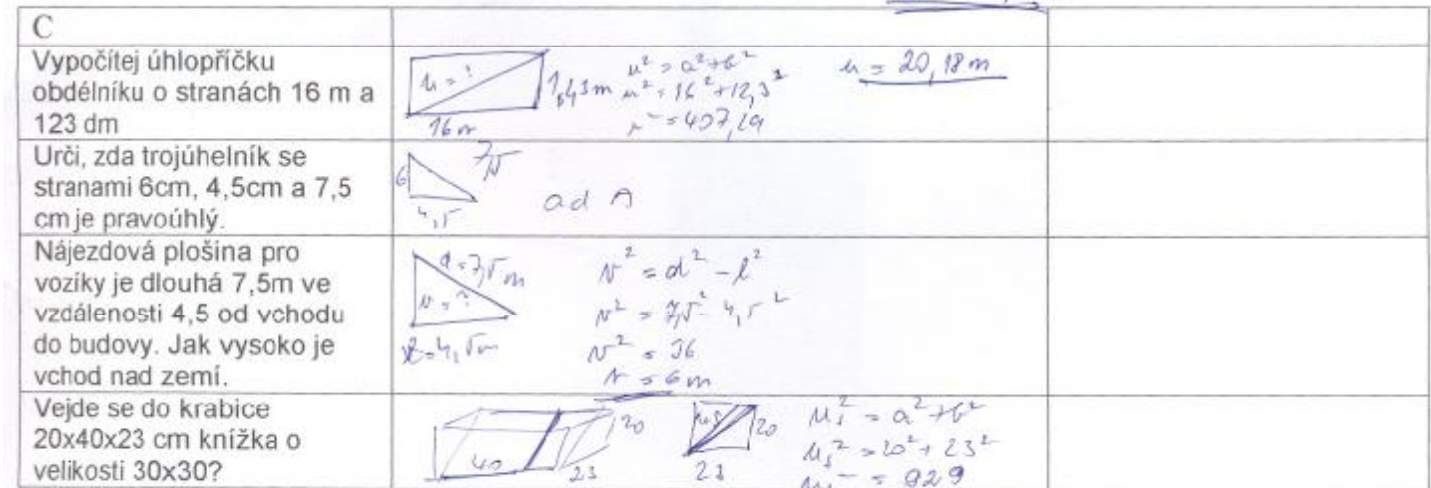 C
Vypočítej úhlopříčku
obdélníku o stranách 16 m a
123 dm
u = ?
16 m
u² = a² + b²
u² = 16² + 12,3²
u = 20,18 m
Urči, zda trojúhelník se
stranami 6cm, 4,5cm a 7,5
cm je pravoúhlý.
6
7,5
4,5
ad A
Nájezdová plošina pro
vozíky je dlouhá 7,5m ve
vzdálenosti 4,5 od vchodu
do budovy. Jak vysoko je
vchod nad zemí.
d = 7,5 m
v = ?
l = 4,5 m
v² = d² - l²
v² = 7,5² - 4,5²
v² = 36
v = 6 m
Vejde se do krabice
20x40x23 cm knížka o
velikosti 30x30?
40
23
20
us
20
23
us² = a² + b²
us² = 20² + 23²
= 929